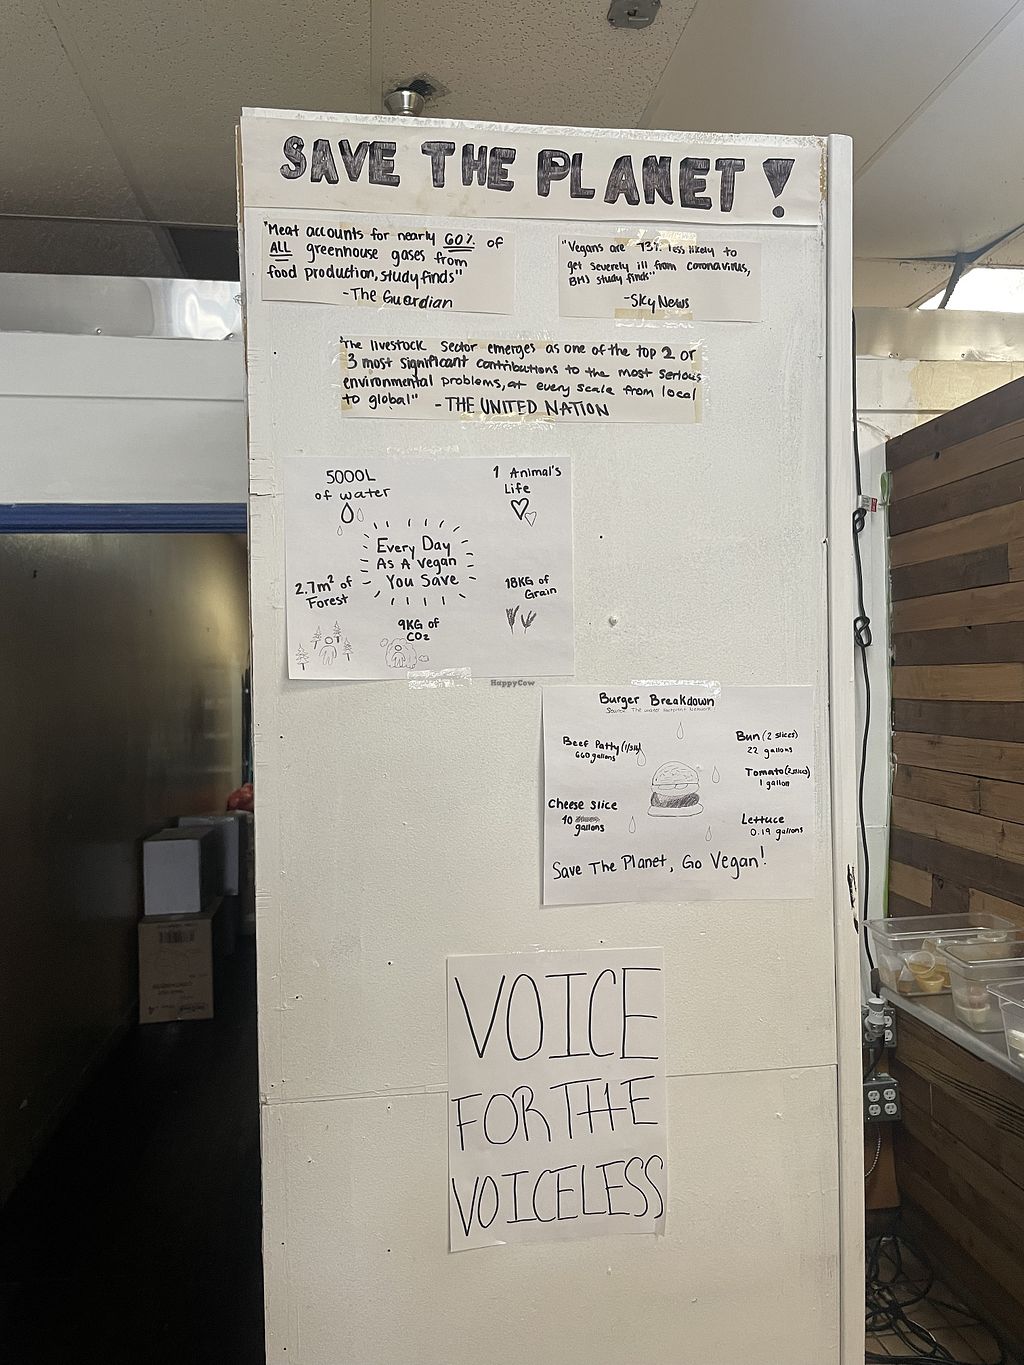 SAVE THE PLANET!
"Meat accounts for nearly 60% of
ALL greenhouse gases from
food production, study finds"
-The Guardian
"Vegans are 73% less likely to
get severely ill from coronavirus,
BMJ study finds"
-Sky News
"The livestock sector emerges as one of the top 2 or
3 most significant contributions to the most serious
environmental problems, at every scale from local
to global" - THE UNITED NATION
5000L
of water
1 Animal's
Life
Every Day
As A Vegan
You Save
2.7m² of
Forest
18KG of
Grain
9KG of
CO2
HappyCow
Burger Breakdown
Source: The Water Footprint Network
Beef Patty (1/3lb)
660 gallons
Bun (2 slices)
22 gallons
Tomato (2 slices)
1 gallon
Cheese Slice
40
gallons
Lettuce
0.19 gallons
Save The Planet, Go Vegan!
VOICE
FOR THE
VOICELESS